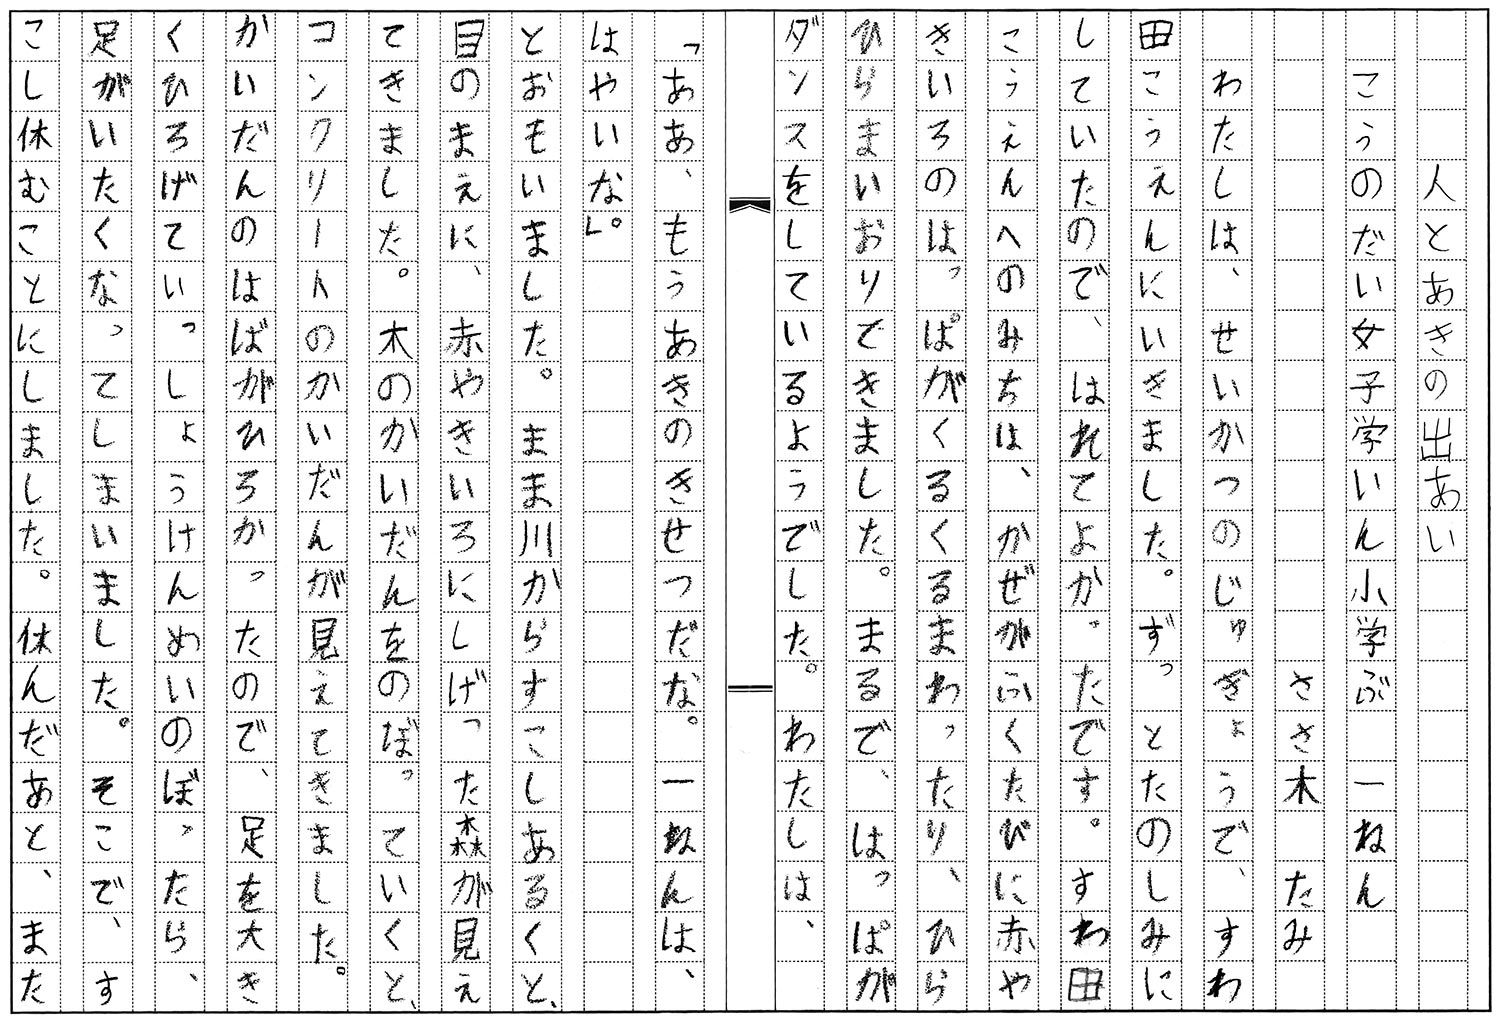 人とあきの出あい
こうのだい女子学いん小学ぶ　一ねん
ささ木　たみ
わたしは、せいかつのじゅぎょうで、すわ
田こうえんにいきました。ずっとたのしみに
していたので、はれてよかったです。すわ田
こうえんへのみちは、かぜがふくたびに赤や
きいろのはっぱがくるくるまわったり、ひら
ひらまいおりてきました。まるで、はっぱが
ダンスをしているようでした。わたしは、
「ああ、もうあきのきせつだな。一ねんは、
はやいな」。
とおもいました。まま川からすこしあるくと、
目のまえに、赤やきいろにしげった森が見え
てきました。木のかいだんをのぼっていくと、
コンクリートのかいだんが見えてきました。
かいだんのはばがひろかったので、足を大き
くひろげていっしょうけんめいのぼったら、
足がいたくなってしまいました。そこで、す
こし休むことにしました。休んだあと、また